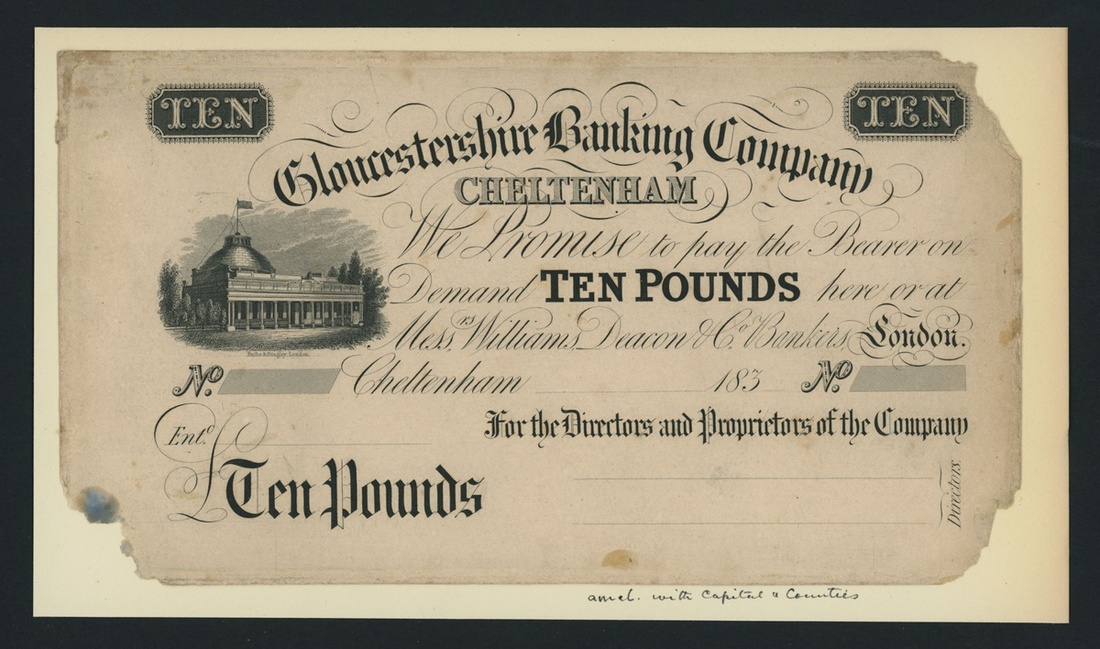 TEN TEN
Gloucestershire Banking Company
CHELTENHAM
We Promise to pay the Bearer on
Demand TEN POUNDS here or at
Messrs Williams Deacon & Co Bankers London.
No. Cheltenham 183 No.
Entd. For the Directors and Proprietors of the Company
£ Ten Pounds
Directors.
amal. with Capital & Counties